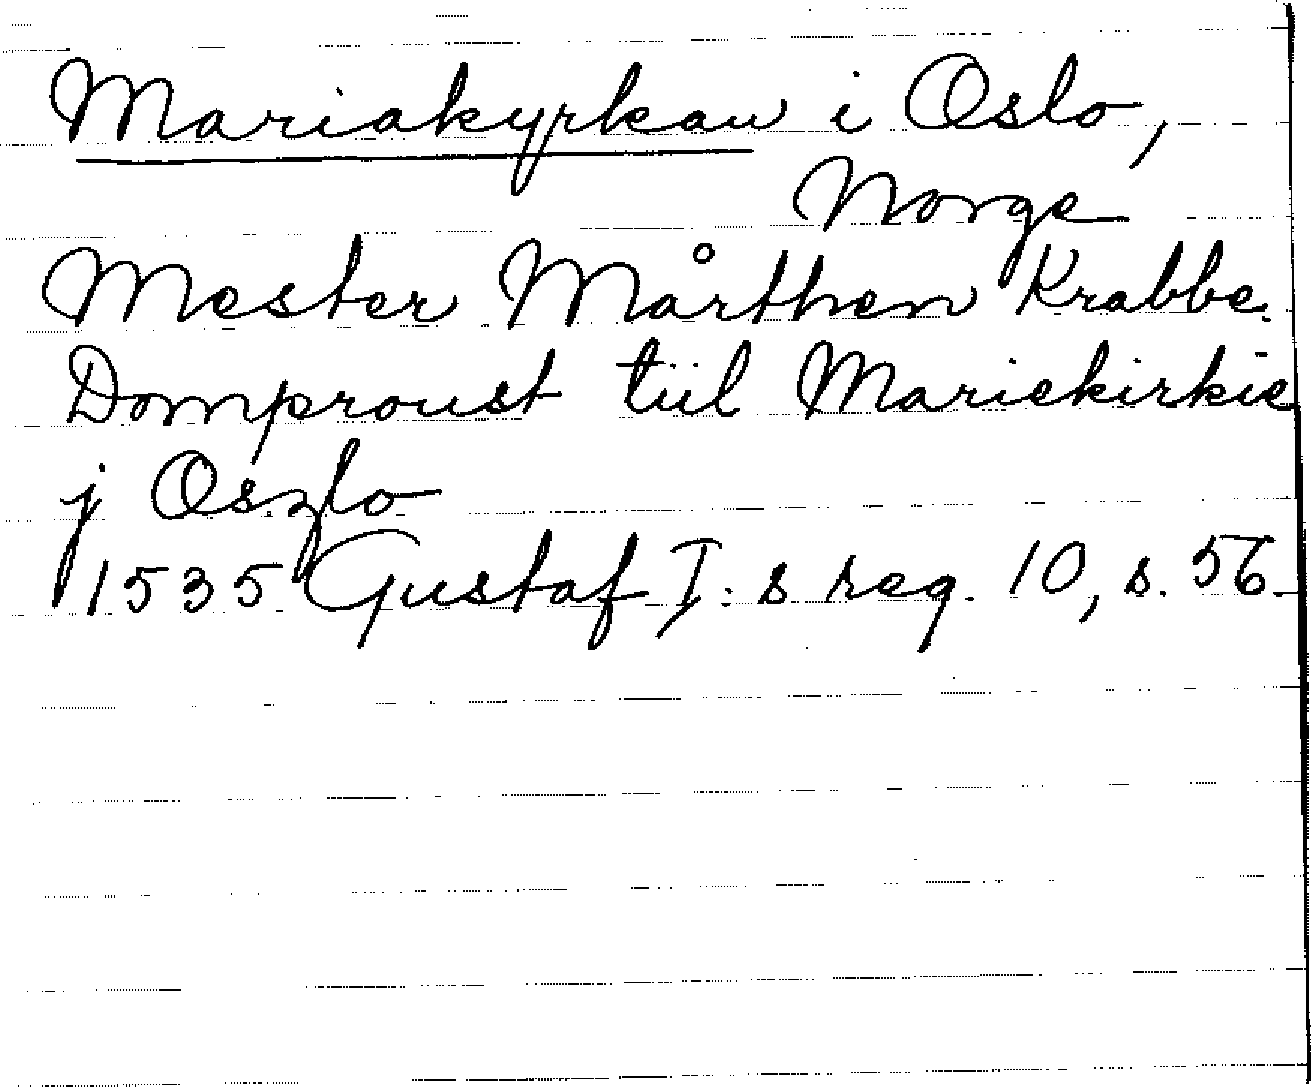 Mariakyrkan i Oslo,
Norge
Mester Mårthen Krabbe.
Domproust tiil Mariekirkie
j Oszlo
1535 Gustaf I:s reg. 10, s. 56